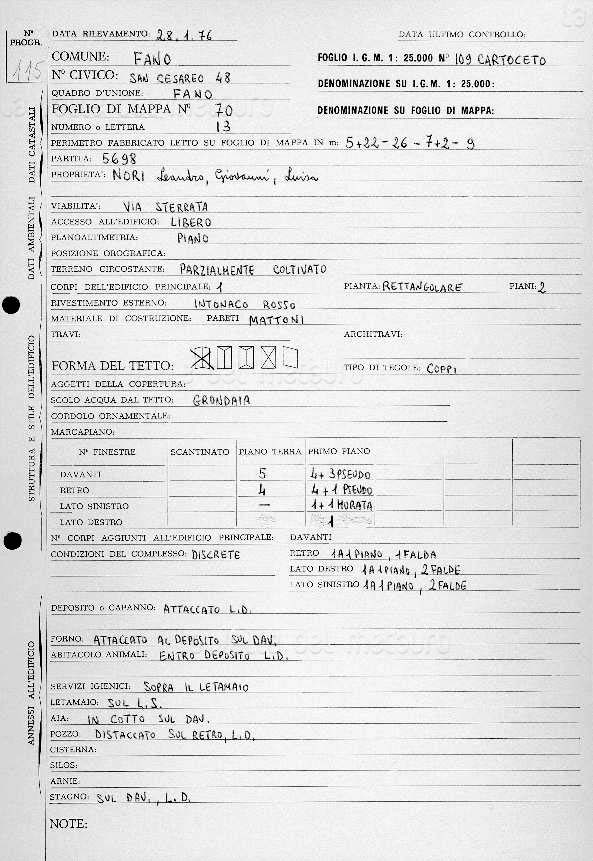 Nº PROGR.
115
DATA RILEVAMENTO: 28.1.76
DATA ULTIMO CONTROLLO:
COMUNE: FANO
FOGLIO I.G.M. 1: 25.000 Nº 109 CARTOCETO
Nº CIVICO: SAN CESAREO 48
DENOMINAZIONE SU I.G.M. 1: 25.000:
QUADRO D'UNIONE: FANO
FOGLIO DI MAPPA Nº 70
DENOMINAZIONE SU FOGLIO DI MAPPA:
NUMERO o LETTERA 13
PERIMETRO FABBRICATO LETTO SU FOGLIO DI MAPPA IN m: 5+22-26-7+2-9
PARTITA: 5698
PROPRIETA': NORI Leandro, Giovanni, Luisa
DATI CATASTALI
VIABILITA': VIA STERRATA
ACCESSO ALL'EDIFICIO: LIBERO
PLANOALTIMETRIA: PIANO
POSIZIONE OROGRAFICA:
TERRENO CIRCOSTANTE: PARZIALMENTE COLTIVATO
DATI AMBIENTALI
CORPI DELL'EDIFICIO PRINCIPALE: 1 PIANTA: RETTANGOLARE PIANI: 2
RIVESTIMENTO ESTERNO: INTONACO ROSSO
MATERIALE DI COSTRUZIONE: PARETI MATTONI
TRAVI: ARCHITRAVI:
FORMA DEL TETTO: TIPO DI TEGOLE: COPPI
AGGETTI DELLA COPERTURA:
SCOLO ACQUA DAL TETTO: GRONDAIA
CORDOLO ORNAMENTALE:
MARCAPIANO:
STRUTTURA E STILE DELL'EDIFICIO
Nº FINESTRE SCANTINATO PIANO TERRA PRIMO PIANO
DAVANTI 5 4+3PSEUDO
RETRO 4 4+1 PSEUDO
LATO SINISTRO — 1+1MURATA
LATO DESTRO 1
Nº CORPI AGGIUNTI ALL'EDIFICIO PRINCIPALE: DAVANTI
CONDIZIONI DEL COMPLESSO: DISCRETE
RETRO 1A1PIANO, 1FALDA
LATO DESTRO 1A1PIANO, 2FALDE
LATO SINISTRO 1A1PIANO, 2FALDE
DEPOSITO o CAPANNO: ATTACCATO L.D.
FORNO: ATTACCATO AL DEPOSITO SUL DAV.
ABITACOLO ANIMALI: ENTRO DEPOSITO L.D.
SERVIZI IGIENICI: SOPRA IL LETAMAIO
LETAMAIO: SUL L.S.
AIA: IN COTTO SUL DAV.
POZZO: DISTACCATO SUL RETRO, L.D.
CISTERNA:
SILOS:
ARNIE:
STAGNO: SUL DAV., L.D.
ANNESSI ALL'EDIFICIO
NOTE: